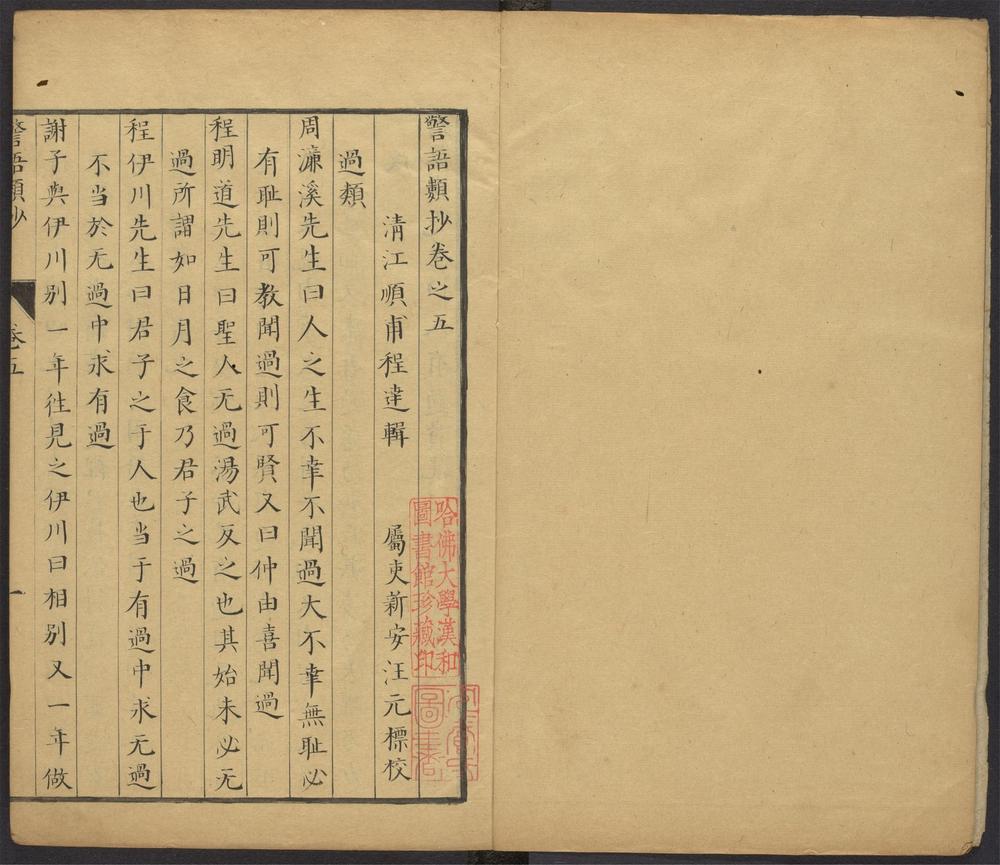 警語類抄卷之五
清江順甫程達輯 屬吏新安汪元標校
過類
周濂溪先生曰人之生不幸不聞過大不幸無耻必
有耻則可教聞過則可賢又曰仲由喜聞過
程明道先生曰聖人无過湯武反之也其始未必无
過所謂如日月之食乃君子之過
程伊川先生曰君子之于人也当于有過中求无過
不当於无過中求有過
謝子與伊川别一年徃見之伊川曰相别又一年做
警語類抄 卷五 一
哈佛大學漢和
圖書館珍藏印